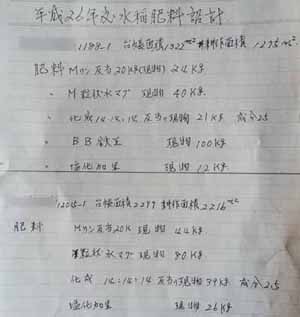 平成26年度水稲肥料設計
1188-1 台帳面積1322m² 耕作面積 1295m²
肥料 Mリン 反当20K(現物) 24Kg
〃 M粒状水マグ 現物 40Kg
〃 化成14.14.14 反当り現物 21Kg 成分2.5
〃 BB鉄王 現物 100Kg
〃 塩化加里 現物 12Kg
1205-1 台帳面積2299 耕作面積2216m²
肥料 Mリン 反当20K 現物 44Kg
粒状水マグ 現物 80Kg
化成 14.14.14 反当り現物39Kg 成分2.5
塩化加里 現物 26Kg